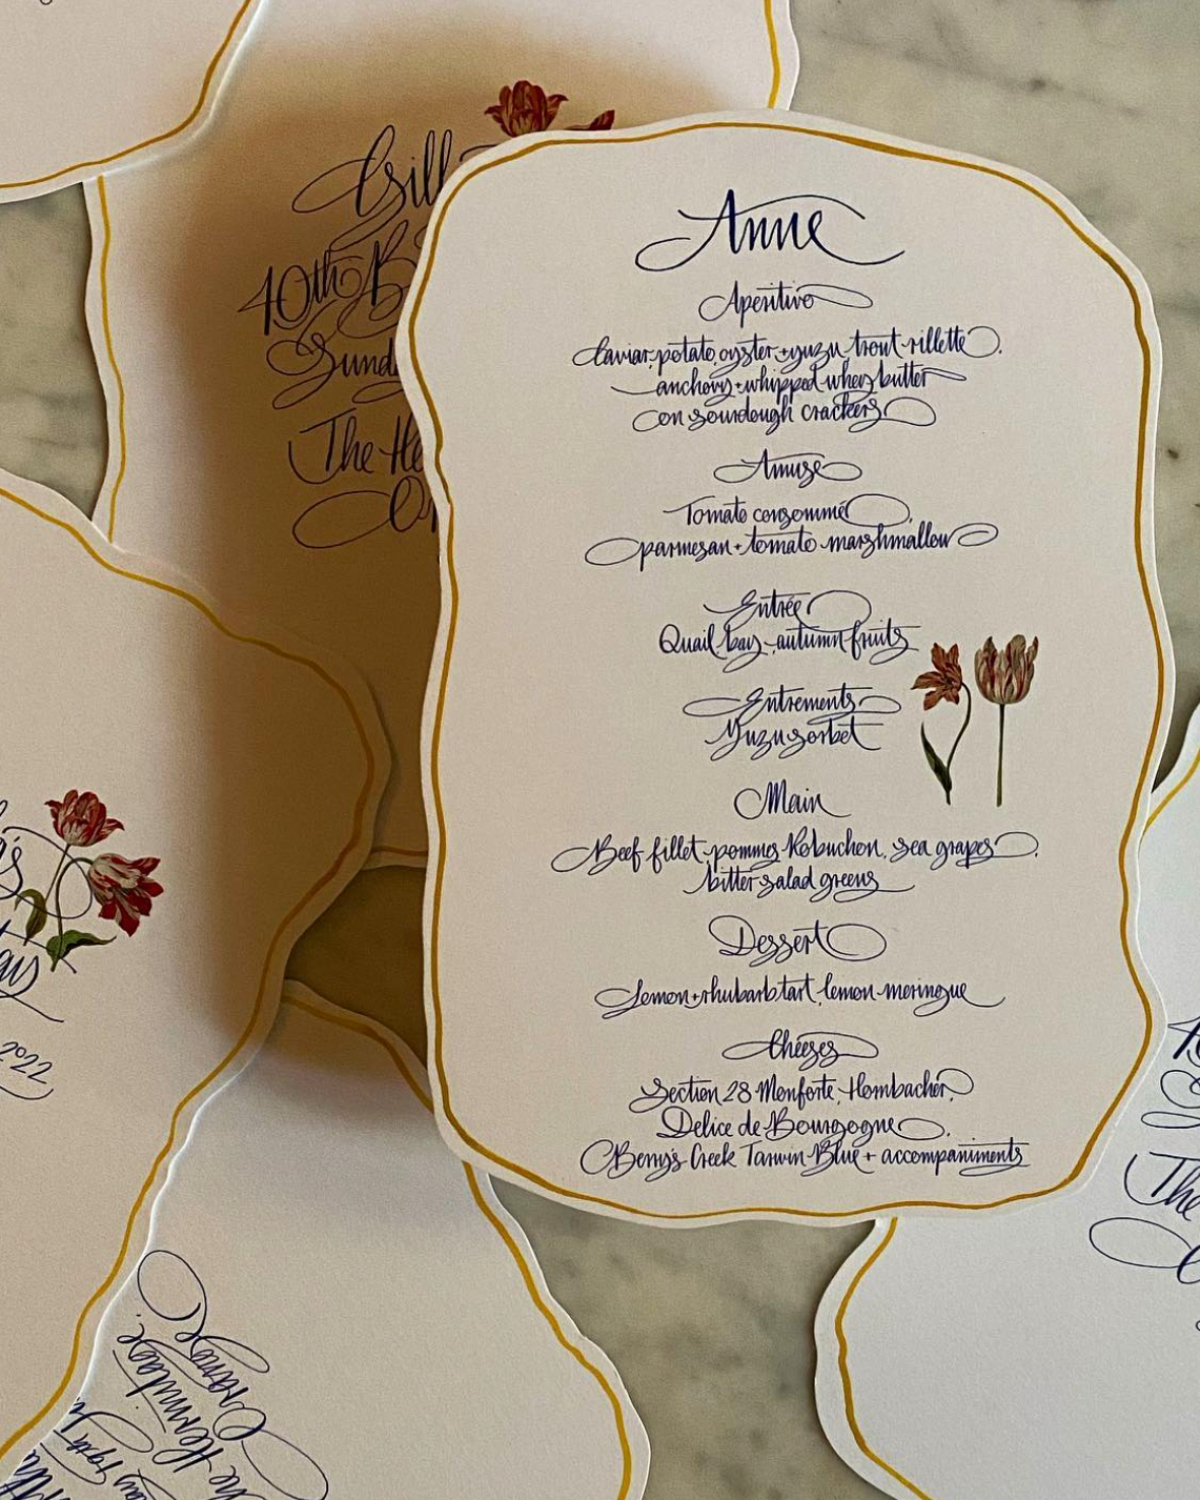 40th B
Sund
The He
Anne
Aperitivo
Caviar, potato, oyster + yuzu, trout rillette,
anchovy + whipped whey butter
on sourdough crackers
Amuse
Tomato consommé,
parmesan + tomato marshmallow
Entrée
Quail, bay, autumn fruits
Entrements
Yuzu sorbet
Main
Beef fillet, pommes Robuchon, sea grapes,
bitter salad greens
Dessert
Lemon + rhubarb tart, lemon meringue
Cheeses
Section 28 Monforte, Hombacher,
Delice de Bourgogne,
Berry's Creek Tarwin Blue + accompaniments
2022
The Hermitage,
Orange
The